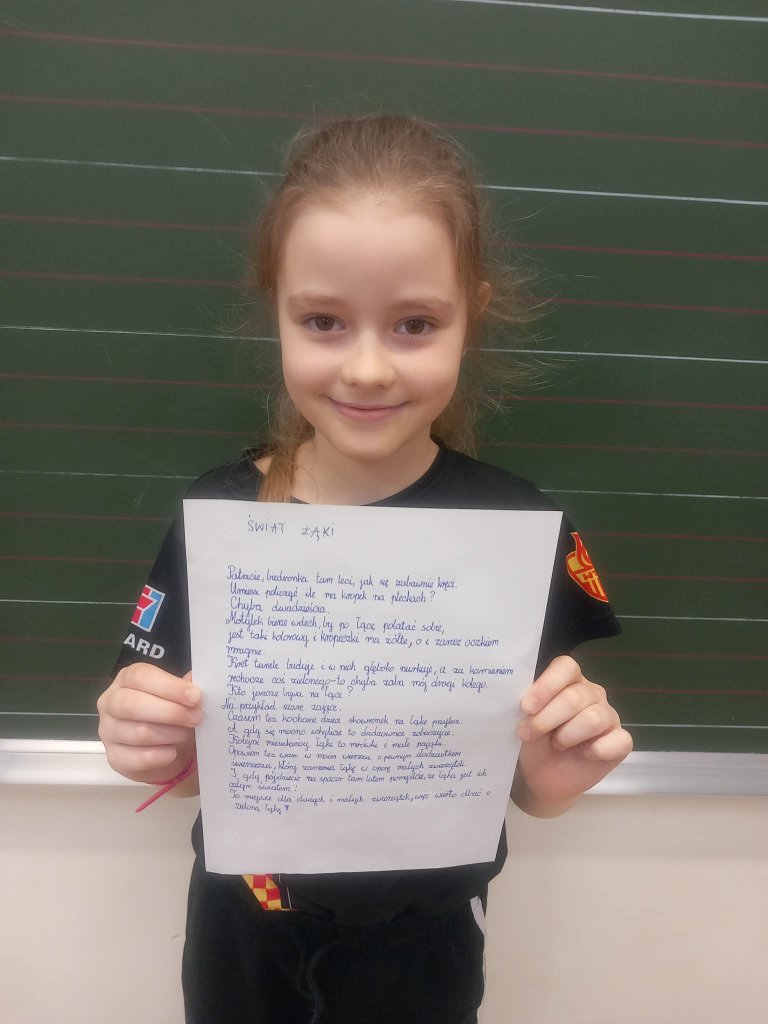 ŚWIAT ŁĄKI
Patrzcie, biedronka tam leci, jak się zabawnie kręci.
Umiesz policzyć ile ma kropek na pleckach?
Chyba dwadzieścia.
Motylek bierze wdech, by po łące polatać sobie,
jest taki kolorowy i kropeczki ma żółte, o i zaraz oczkiem
mrugnie.
Kret tunele buduje i w nich głęboko nurkuje, a za kamieniem
rechocze coś zielonego-to chyba żaba mój drogi kolego.
Kto jeszcze bywa na łące?
Na przykład szare zające.
Czasem też kochane dzieci skowronek na łąkę przyleci.
A gdy się mocno schylicie to dżdżownice zobaczycie.
Kolejni mieszkańcy łąki to mrówki i małe pająki.
Opowiem też wam w moim wierszu o pewnym słodziutkim
świerszczu, który zamienia łąkę w operę małych zwierzątek.
I gdy pójdziecie na spacer tam latem pomyślcie, że łąka jest ich
całym światem!
To miejsce dla dużych i małych zwierzątek, więc warto dbać o
zieloną łąkę
ARD